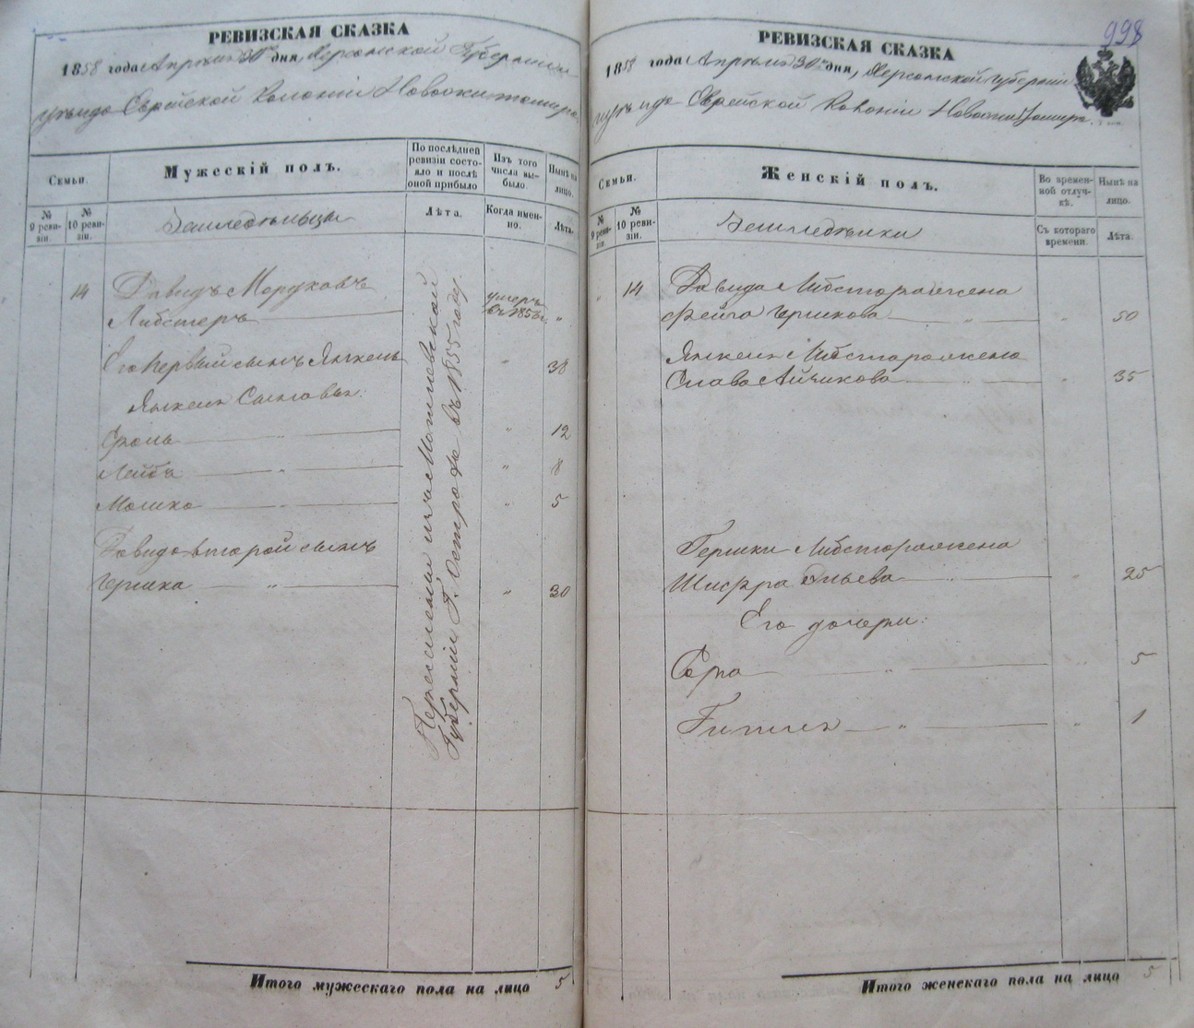 РЕВИЗСКАЯ СКАЗКА
1858 года Апреля 30го дня, Херсонской Губерніи
уѣзда Еврейской Колоніи Новожитомира
Семьи.
Мужескій полъ.
По послѣдней ревизіи состояло и послѣ оной прибыло
Изъ того числа выбыло.
Нынѣ на лицо.
№ 9 ревизіи.
№ 10 ревизіи.
Земледѣльцы
Лѣта.
Когда именно.
Лѣта.
14 Давидъ Мордковъ
Либстеръ — умеръ въ 1858 г. „
Его первый сынъ Янкель „ 38
Янкеля Сыновья:
Сроль „ 12
Лейба „ „ 8
Мошко „ 5
Давида второй сынъ
Гершка „ „ 30
Перечислены изъ Могилевской
Губерніи въ 1855 году
Итого мужескаго пола на лицо 5
998
РЕВИЗСКАЯ СКАЗКА
1858 года Апреля 30го дня, Херсонской Губерніи
уѣзда Еврейской Колоніи
Семьи.
Женскій полъ.
Во временной отлучкѣ.
Нынѣ на лицо.
№ 9 ревизіи.
№ 10 ревизіи.
Земледѣлки
Съ котораго времени.
Лѣта.
„ 14 Давида Либстера жена
Фейга Гершкова „ „ 50
Янкеля Либстера жена
Слава Айзикова „ „ 35
Гершки Либстера жена
Шифра „ „ 25
Его дочери:
Сора „ „ 5
Гитля „ „ 1
Итого женскаго пола на лицо 5